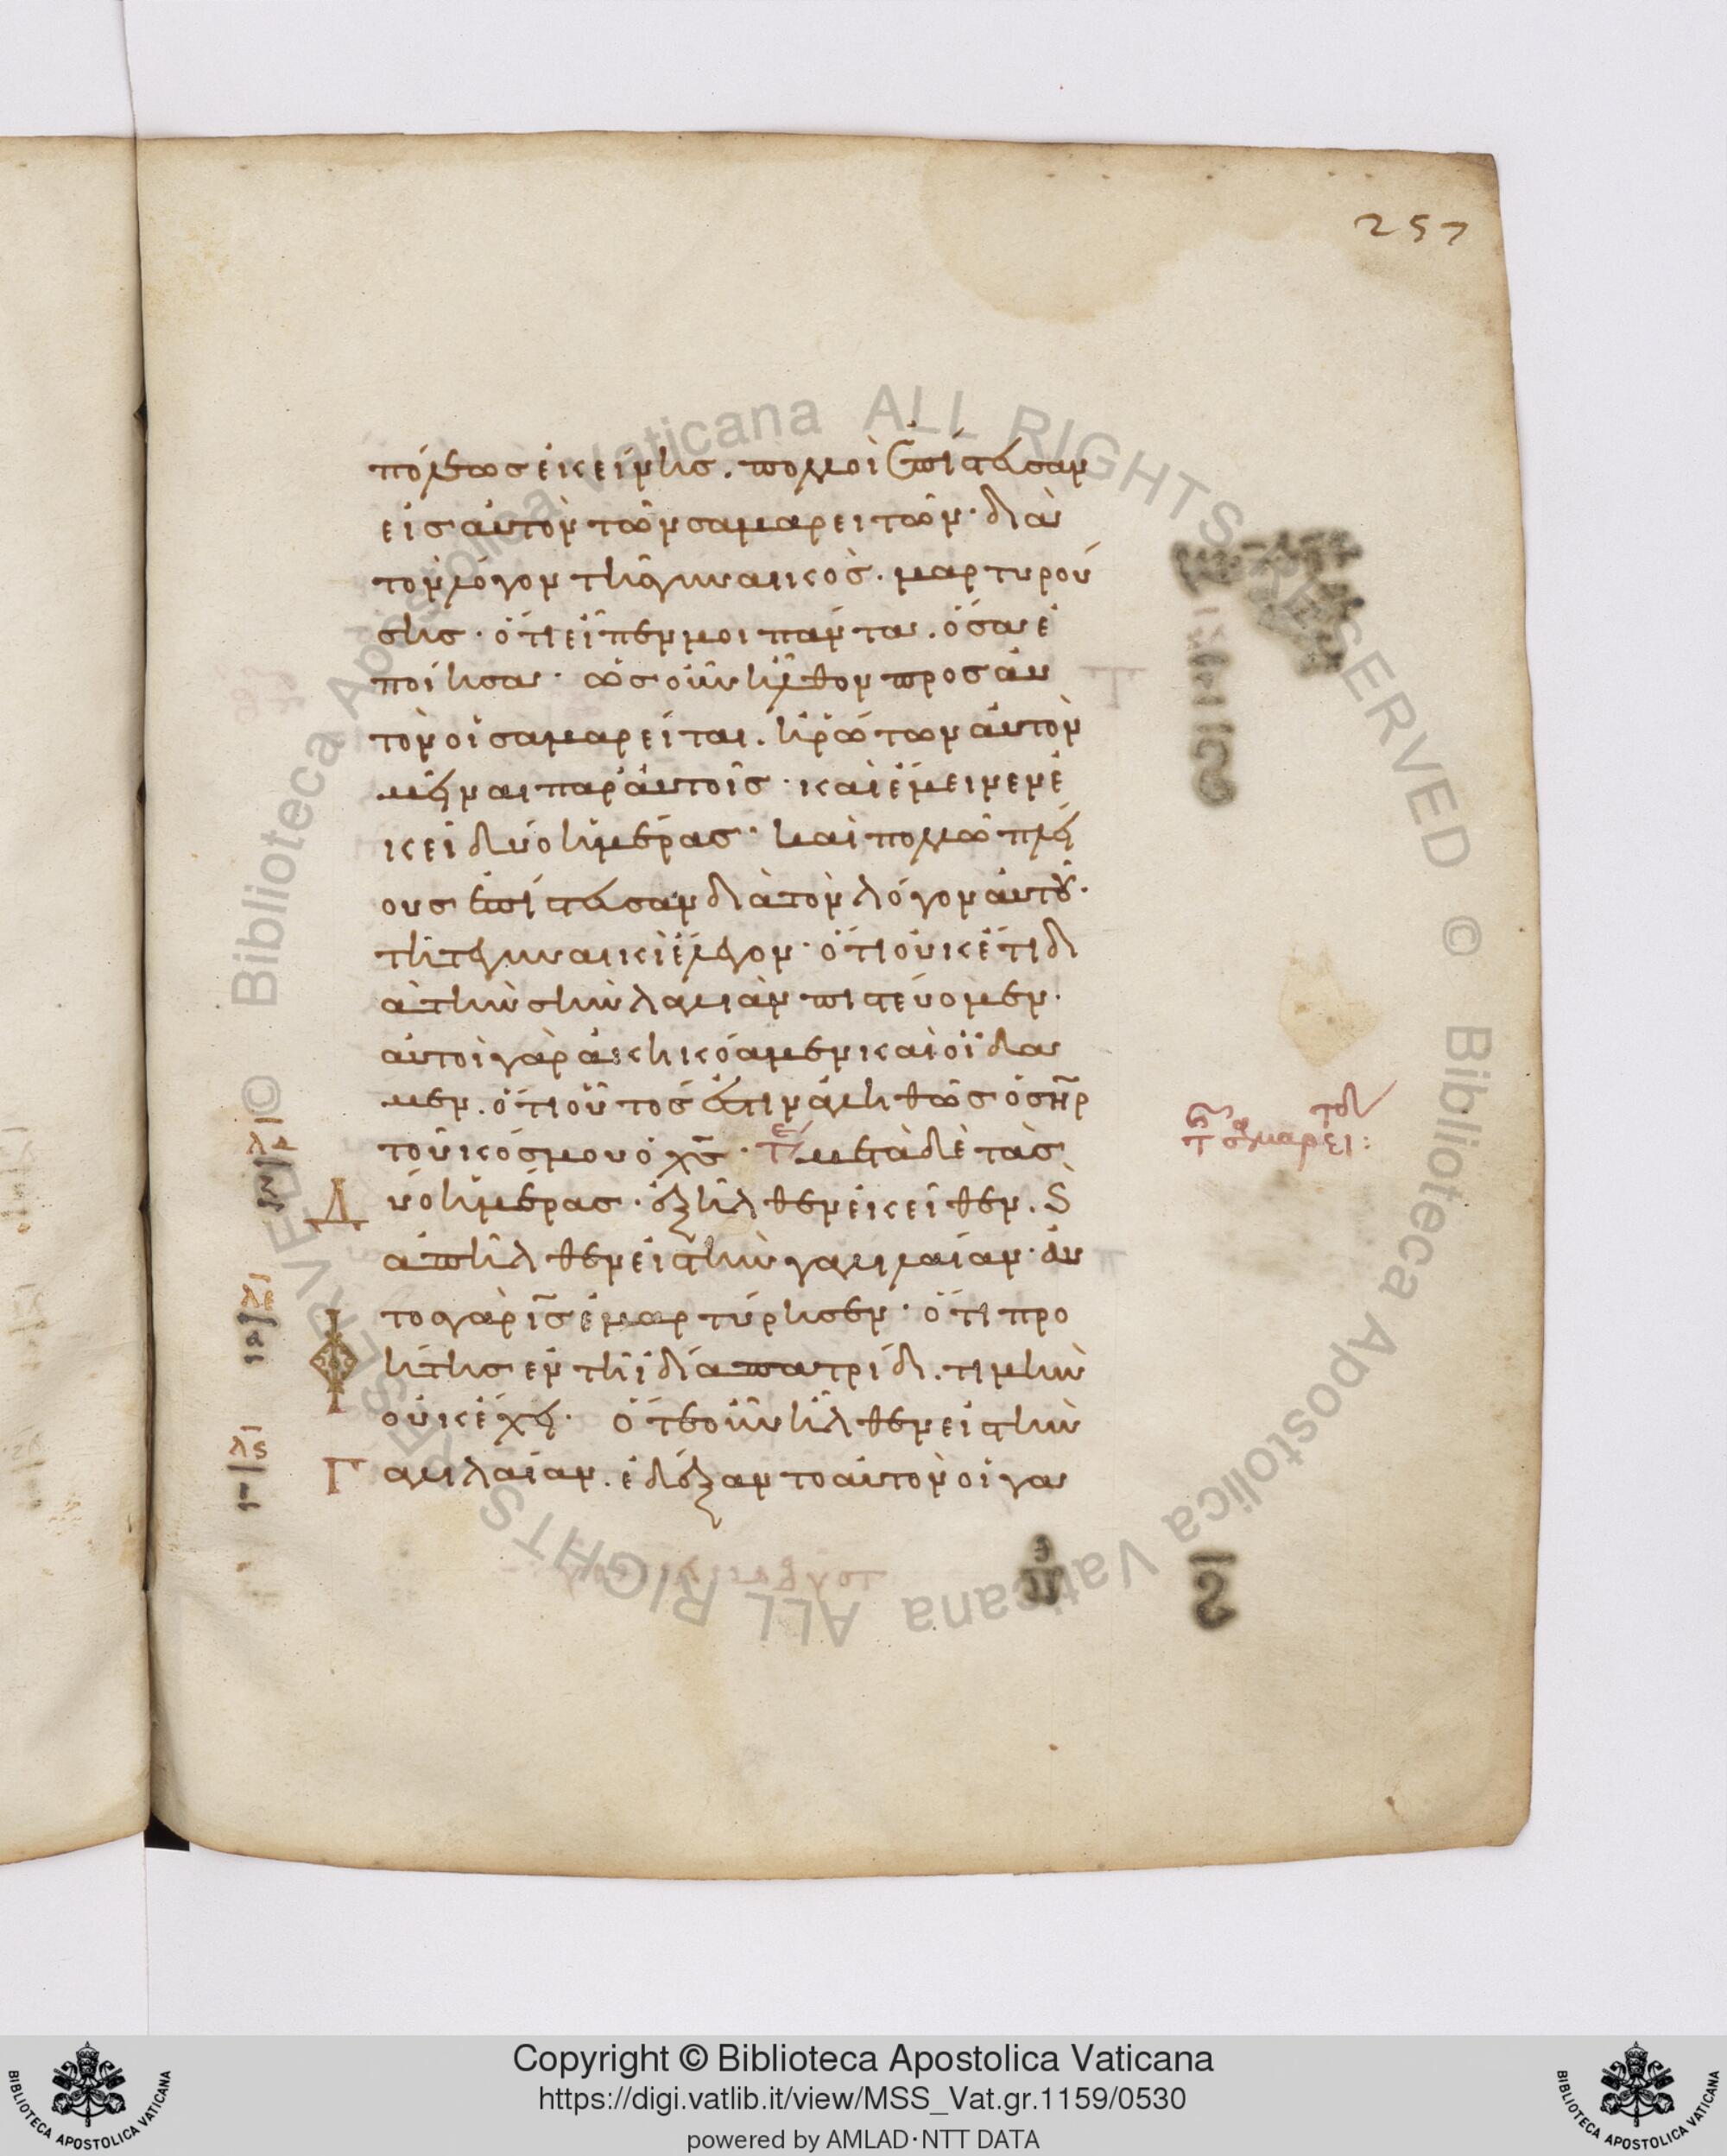 257
πόλεως ἐκείνης. πολλοὶ ἐπίστευσαν
εἰς αὐτὸν τῶν σαμαρειτῶν· διὰ
τὸν λόγον τῆς γυναικὸς. μαρτυρού
σης· ὅτι εἶπεν μοι πάντα. ὅσα ἐ
ποίησα· ὡς οὖν ἦλθον προς αυ
τὸν οἱ σαμαρεῖται. ἠρώτων αὐτὸν
μεῖναι παρ' αὐτοῖς· καὶ ἔμεινεν ἐ
κεῖ δύο ἡμέρας· και πολλῶ πλεί
ους ἐπίστευσαν διὰ τὸν λόγον αὐτοῦ.
τῆ τε γυναικὶ ἔλεγον· ὅτι οὐκέτι δι
ὰ τὴν σὴν λαλιὰν πιστεύομεν.
αὐτοὶ γὰρ ἀκηκόαμεν καὶ οἴδα
μεν. ὅτι οὗτός ἐστιν ἀληθῶς ὁ σηρ
τοῦ κόσμου ὁ χς· τε μετὰ δὲ τὰς
Δ ύο ἡμέρας· ἐξῆλθεν ἐκεῖθεν. ϗ
ἀπῆλθεν εἰς τὴν γαλιλαίαν· αὐ
τος γὰρ ις ἐμαρτύρησεν· ὅτι προ
Φ ήτης ἐν τῆ ἰδία πατρίδι. τιμὴν
οὐκ ἔχει. ὅτε οὖν ἦλθεν εἰς τὴν
Γ αλιλαίαν. ἐδέξαντο αὐτὸν οἱ γα
λδ
λε
λς